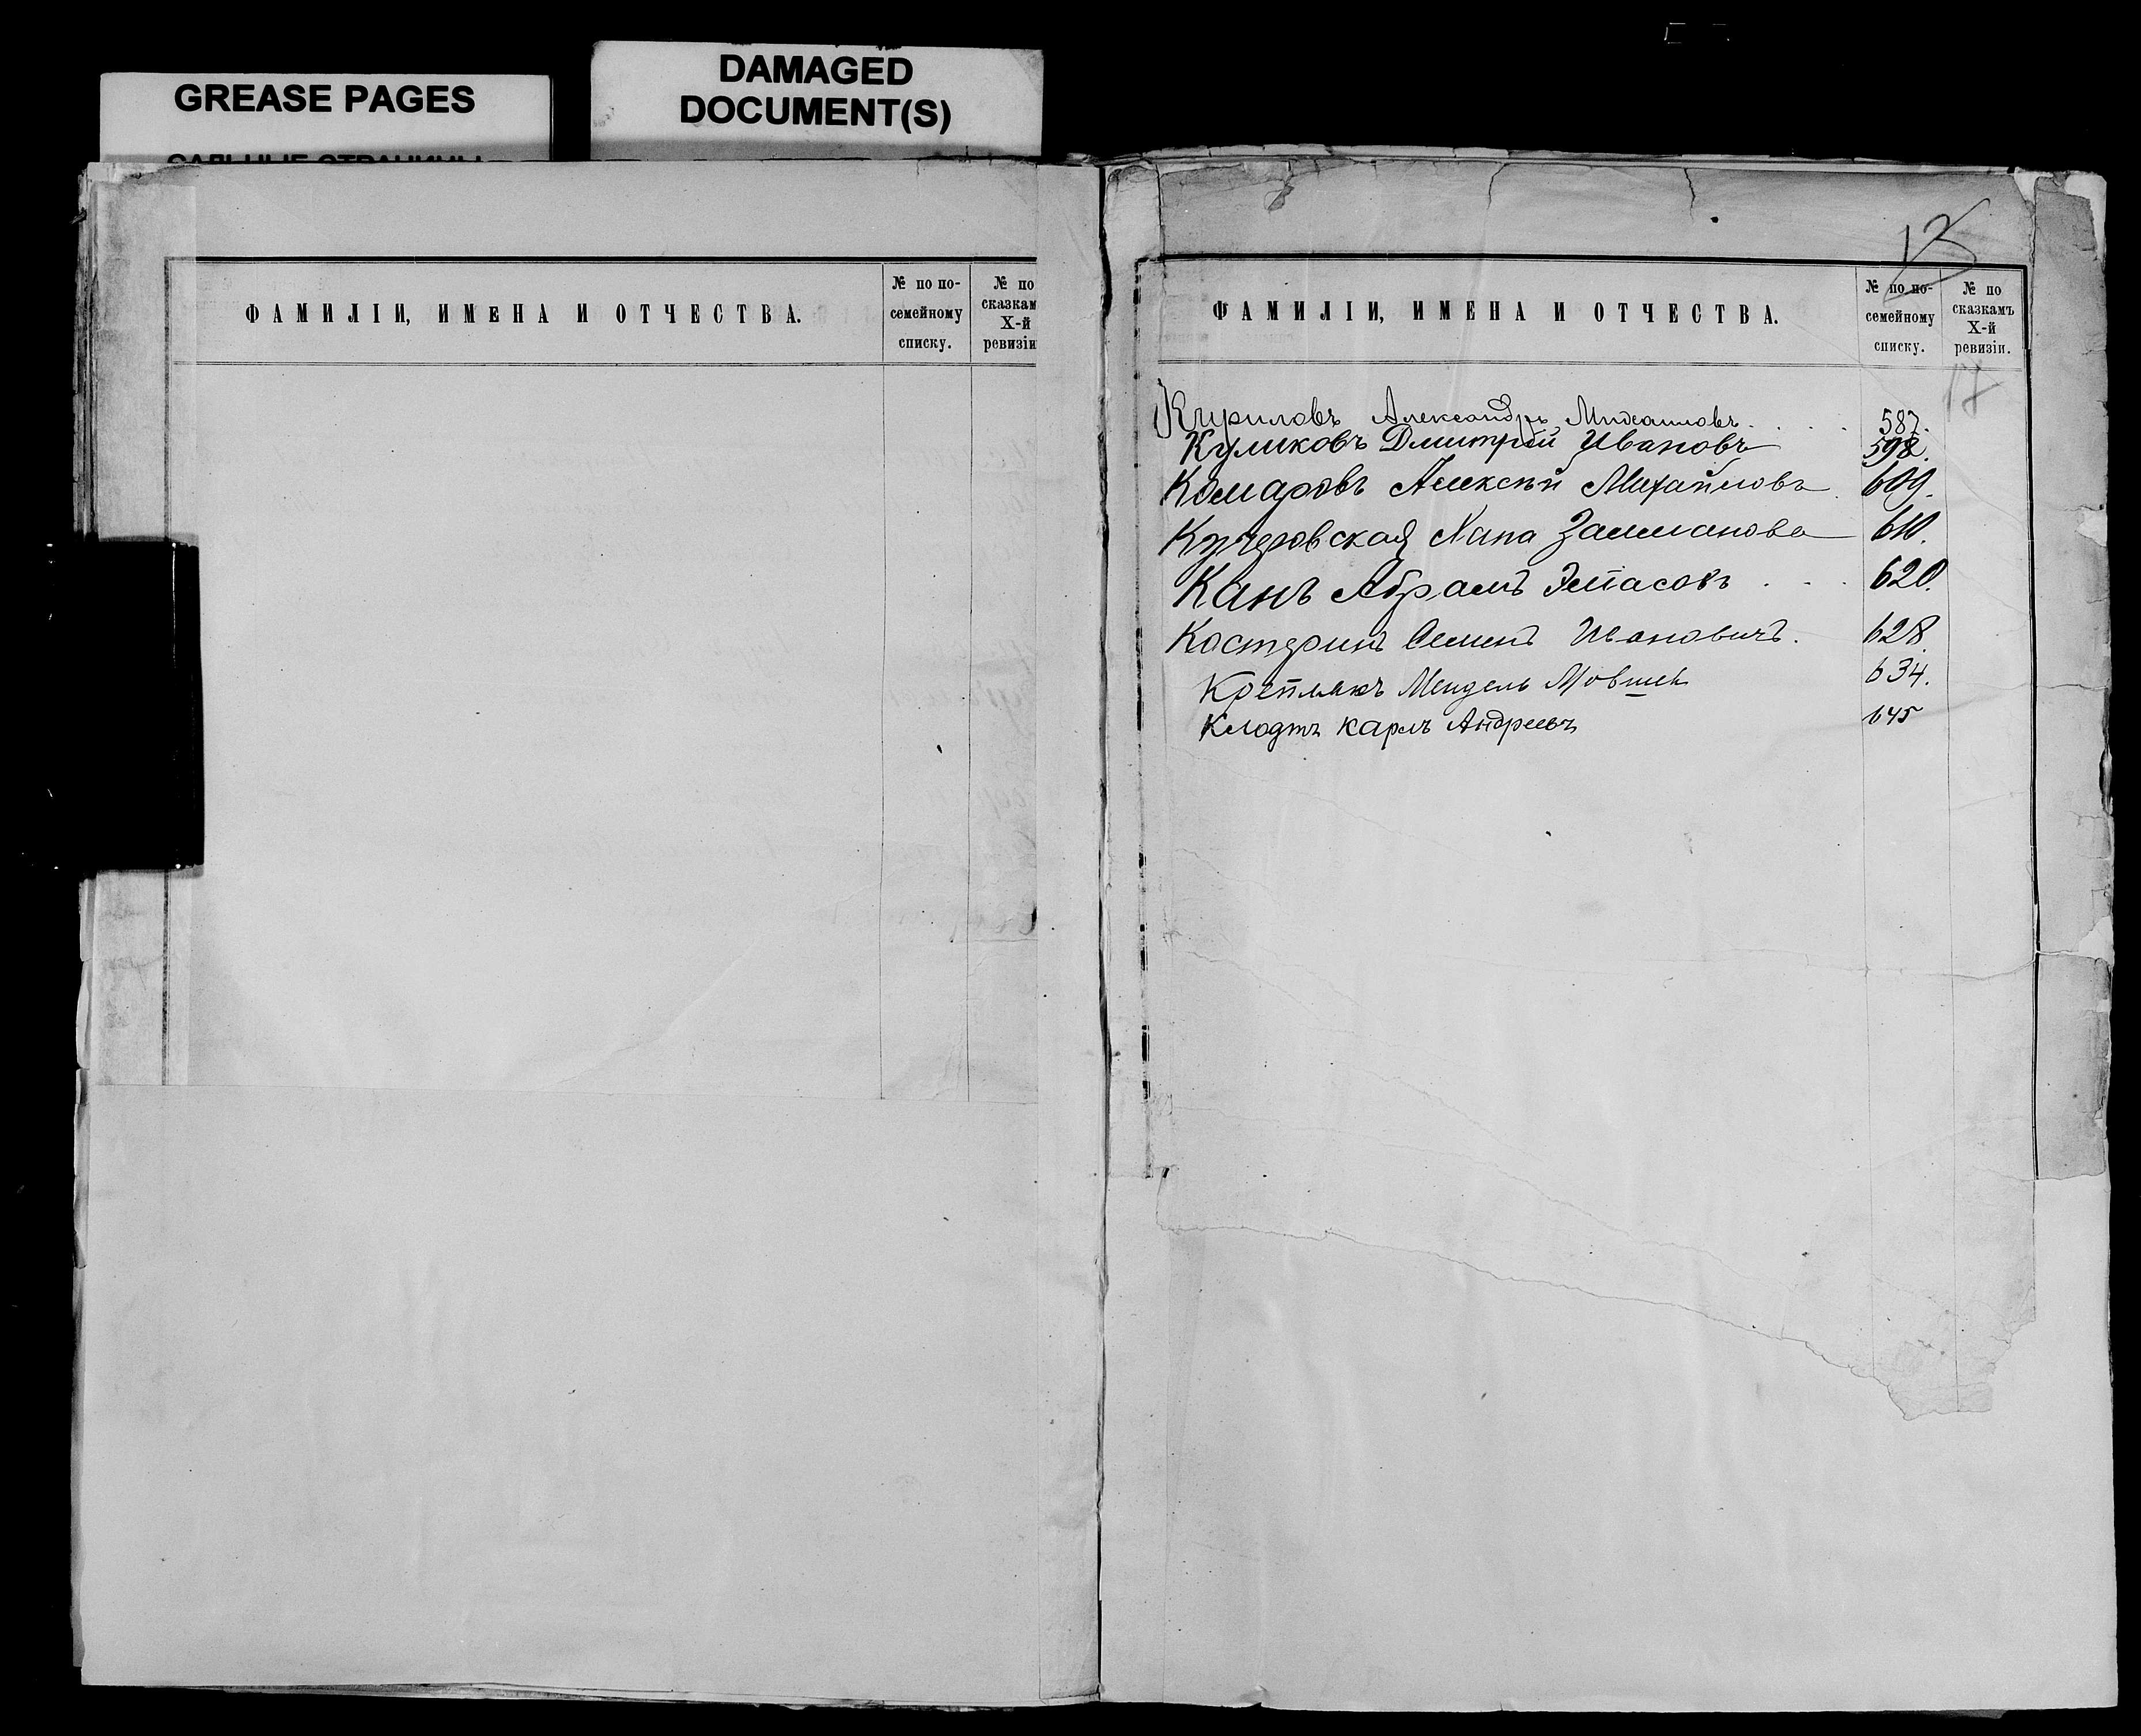 GREASE PAGES
DAMAGED
DOCUMENT(S)
САЛЬНЫЕ СТРАНИЦЫ
ФАМИЛІИ, ИМЕНА И ОТЧЕСТВА.
№ по по-
семейному
списку.
№ по
сказкам
X-й
ревизіи
13
ФАМИЛІИ, ИМЕНА И ОТЧЕСТВА.
№ по по-
семейному
списку.
№ по
сказкамъ
X-й
ревизіи.
17
Кириловъ Александръ Михаиловъ. . . . 587.
Куликовъ Дмитрій Ивановъ 598.
Комаровъ Алексѣй Михайловъ. 609.
Кучеровская Хана Залманова 610.
Канъ Абрамъ . . . 620.
Костеринъ Семенъ Ивановичъ. 628.
Мендель Мовшев 634.
Клодтъ Карлъ Андреевъ 645